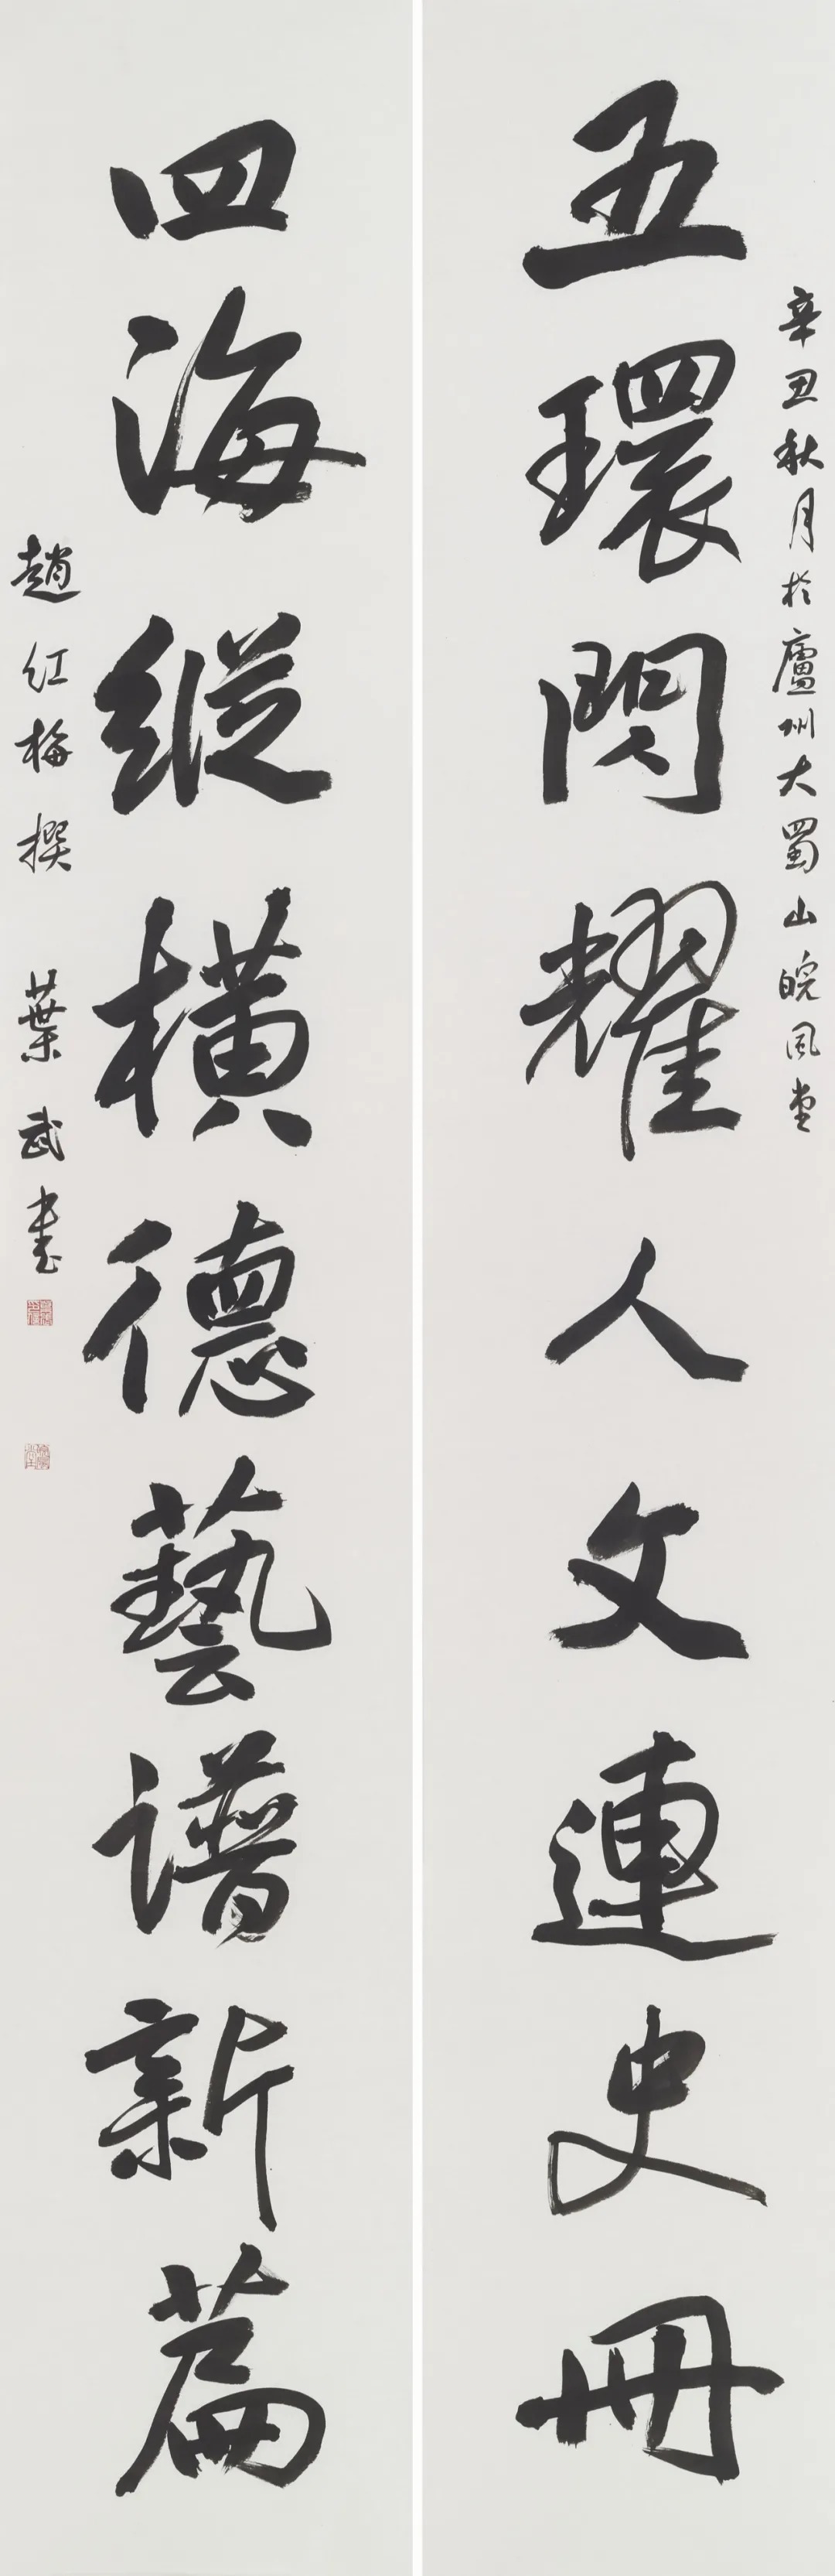 辛丑秋月於廬州大蜀山皖风堂
五環閃耀人文連史冊
四海縱橫德藝谱新篇
趙红梅撰 葉武書